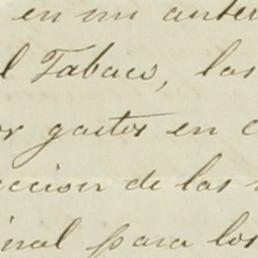 en mi anter
l Tabaco, las
or gastos en c
ccion de las
inal para los